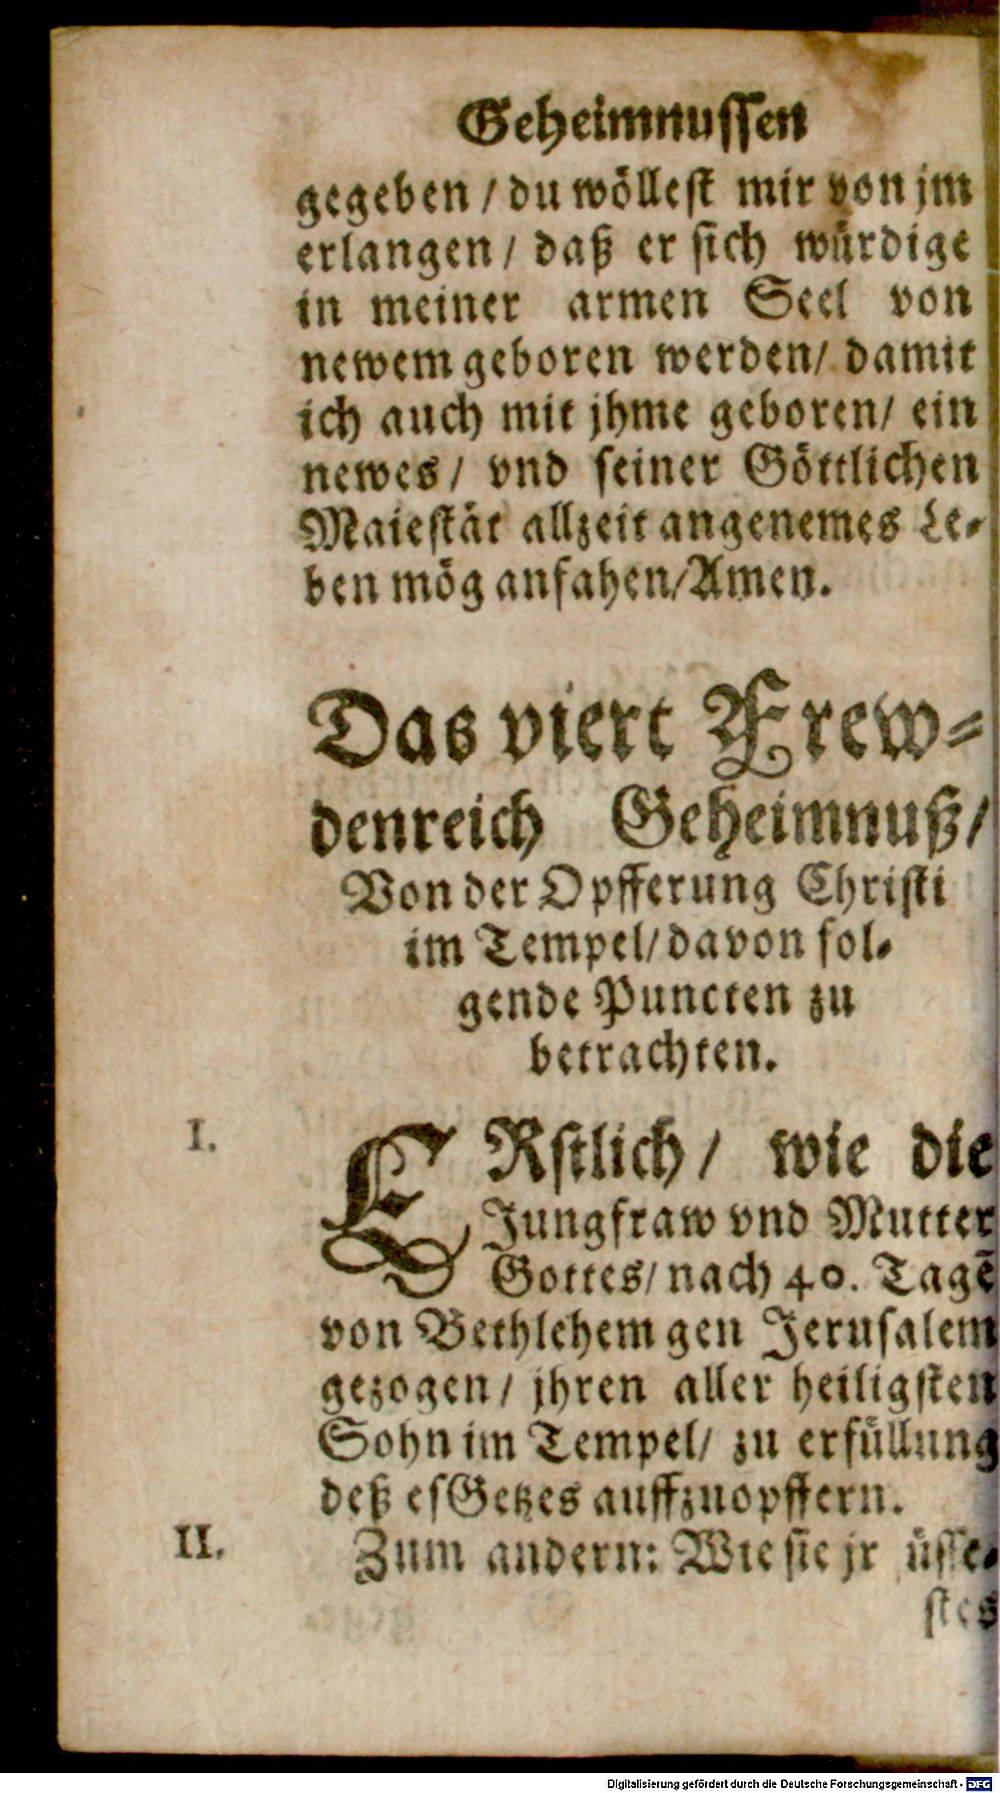 Geheimnussen
gegeben / du wöllest mir von jm
erlangen / daß er sich würdige
in meiner armen Seel von
newem geboren werden / damit
ich auch mit jhme geboren / ein
newes / vnd seiner Göttlichen
Maiestät allzeit angenemes Le-
ben mög anfahen / Amen.
Das viert Frew-
denreich Geheimnuß /
Von der Opfferung Christi
im Tempel / davon fol-
gende Puncten zu
betrachten.
I. ERstlich / wie die
Jungfraw vnd Mutter
Gottes / nach 40. Tagē
von Bethlehem gen Jerusalem
gezogen / jhren aller heiligsten
Sohn im Tempel / zu erfüllung
deß esGetzes auffzuopffern.
II. Zum andern: Wie sie jr üsse-
stes
Digitalisierung gefördert durch die Deutsche Forschungsgemeinschaft - DFG